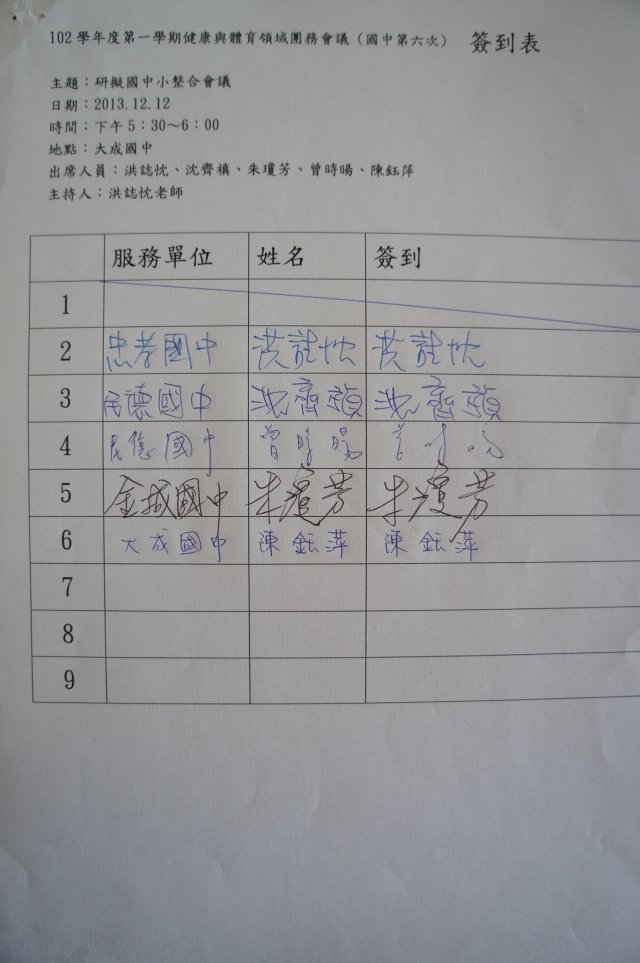 102 學年度第一學期健康與體育領域團務會議（國中第六次） 簽到表
主題：研擬國中小整合會議
日期：2013.12.12
時間：下午 5：30～6：00
地點：大成國中
出席人員：洪誌忱、沈齊禛、朱瓊芳、曾時暘、陳鈺萍
主持人：洪誌忱老師
服務單位 姓名 簽到
1
2 忠孝國中 洪誌忱 洪誌忱
3 民德國中 沈齊禛 沈齊禛
4 民德國中 曾時暘 曾时旸
5 金城國中 朱瓊芳 朱瓊芳
6 大成國中 陳鈺萍 陳鈺萍
7
8
9